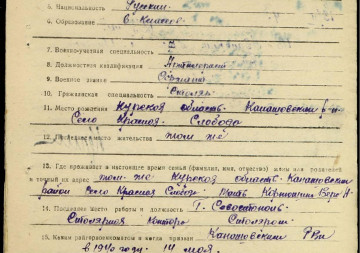 5. Национальность Русский
6. Образование 6 классов
7. Военно-учетная специальность
8. Должностная квалификация
9. Военное звание
10. Гражданская специальность Столяр
11. Место рождения Курская область. Конашовский р-н
Село Красная Слобода
12. Последнее место жительства том же
13. Где проживает в настоящее время семья (фамилия, имя, отчество) жены или родителей
и точный их адрес там-же Курская область. Конашовский
район Село Красная Слобода. Мать Вера
14. Последнее место работы и должность Г. Севостополь
Столярная контора Столяром
15. Каким райвоенкоматом и когда призван Конашовским РВК
в 1940 году. 14 мая.